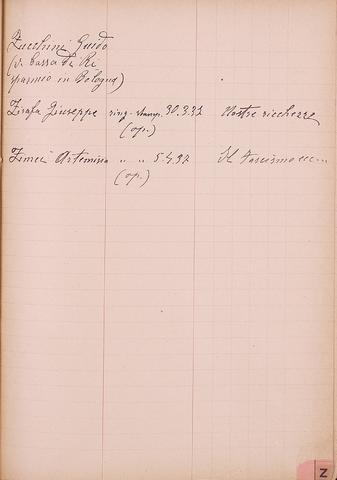 Zucchini Guido
(v. Cassa di Ri
sparmio in Bologna)
Zirafa Giuseppe ring. stamp. 30.3.32 Nostre ricchezze
(op.)
Zimei Artemisia " " 5.4.32 Il Fascismo ecc...
(op.)
Z